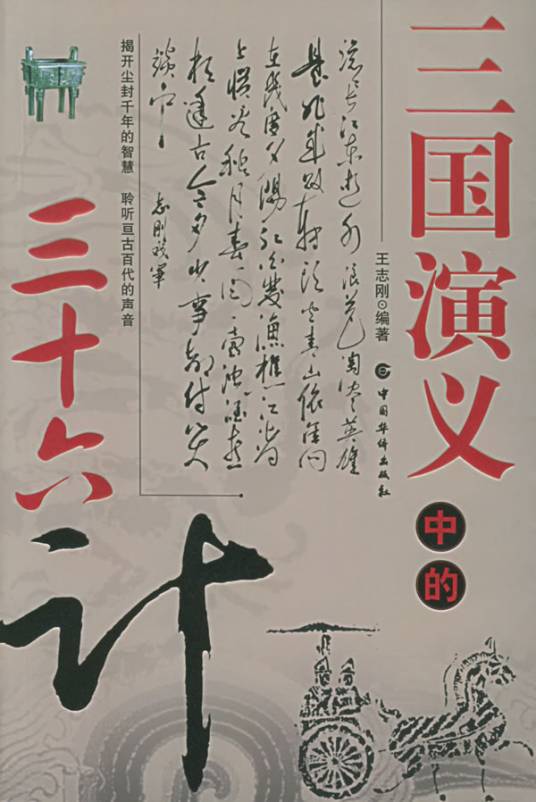 三国演义
中的
三十六计
王志刚⊙编著
中国华侨出版社
滚滚长江东逝水 浪花淘尽英雄
是非成败转头空 青山依旧
在几度夕阳红白发渔樵江渚
上惯看秋月春风一壶浊酒喜
相逢古今多少事都付笑
谈中
志刚戏笔
揭开尘封千年的智慧 聆听亘古百代的声音